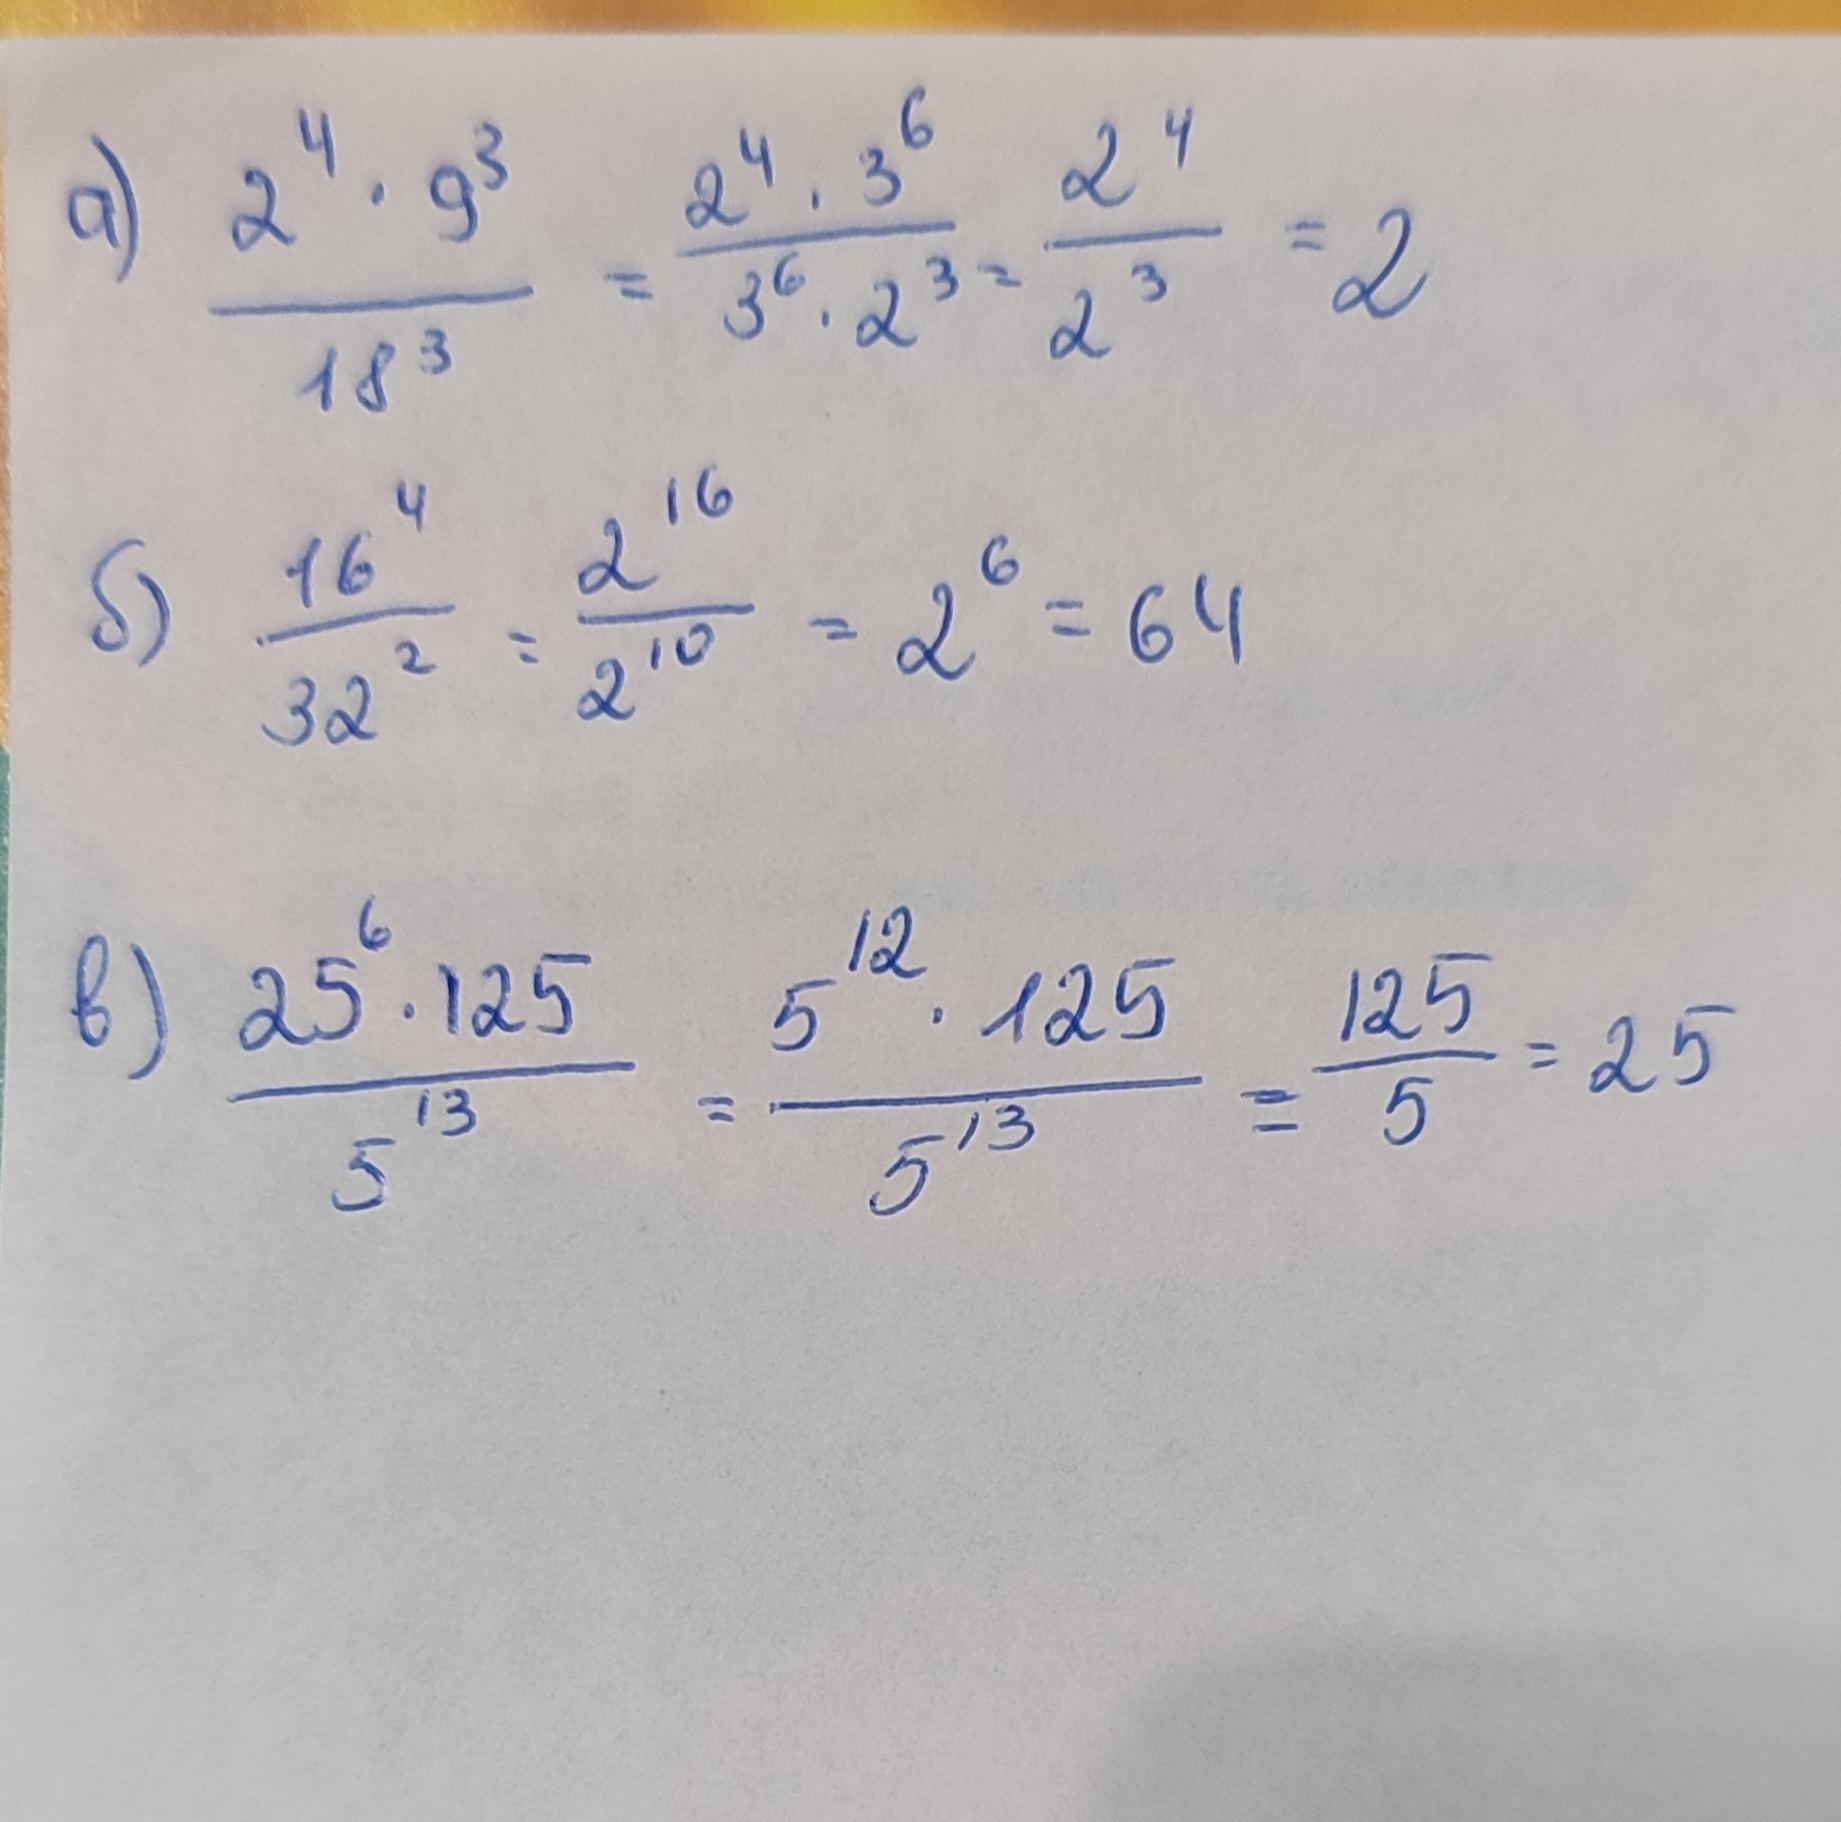 а) (2⁴ · 9³)/18³ = (2⁴ · 3⁶)/(3⁶ · 2³) = 2⁴/2³ = 2
б) 16⁴/32² = 2¹⁶/2¹⁰ = 2⁶ = 64
в) (25⁶ · 125)/5¹³ = (5¹² · 125)/5¹³ = 125/5 = 25